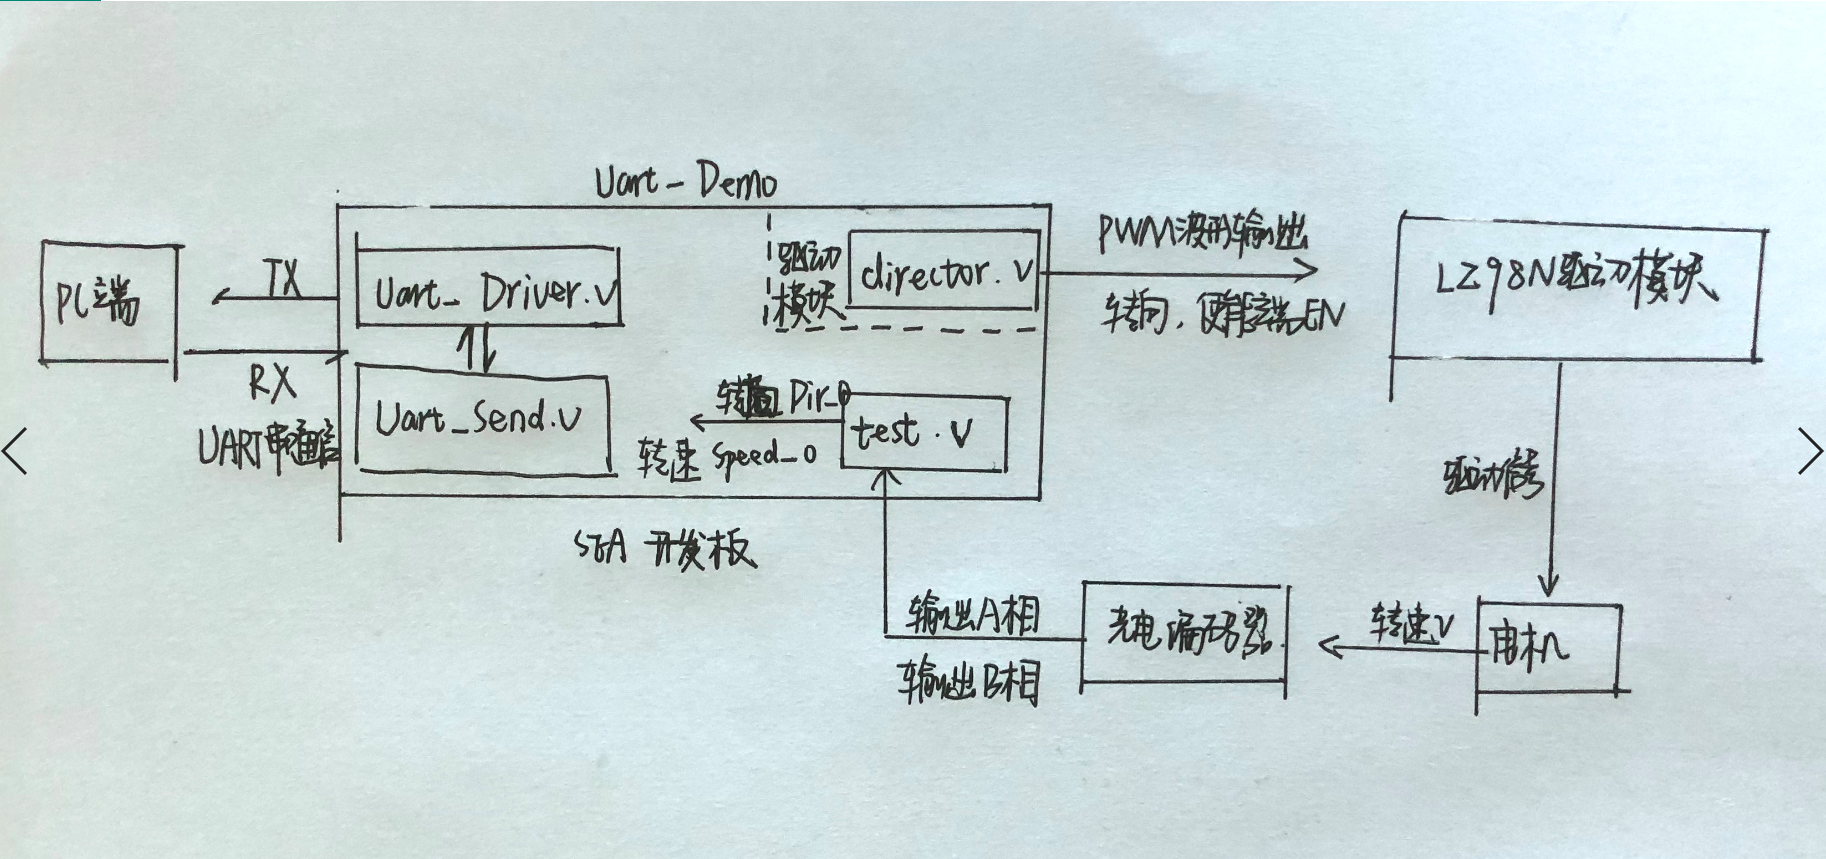 Uart_Demo
PC端
TX
RX
UART串通信
Uart_Driver.v
Uart_Send.v
驱动
模块
director.v
转向 Dir_0
转速 Speed_0
test.v
SEA 开发板
PWM波形输出
转向、使能端EN
L298N驱动模块
驱动信号
电机
转速v
光电编码器
输出A相
输出B相